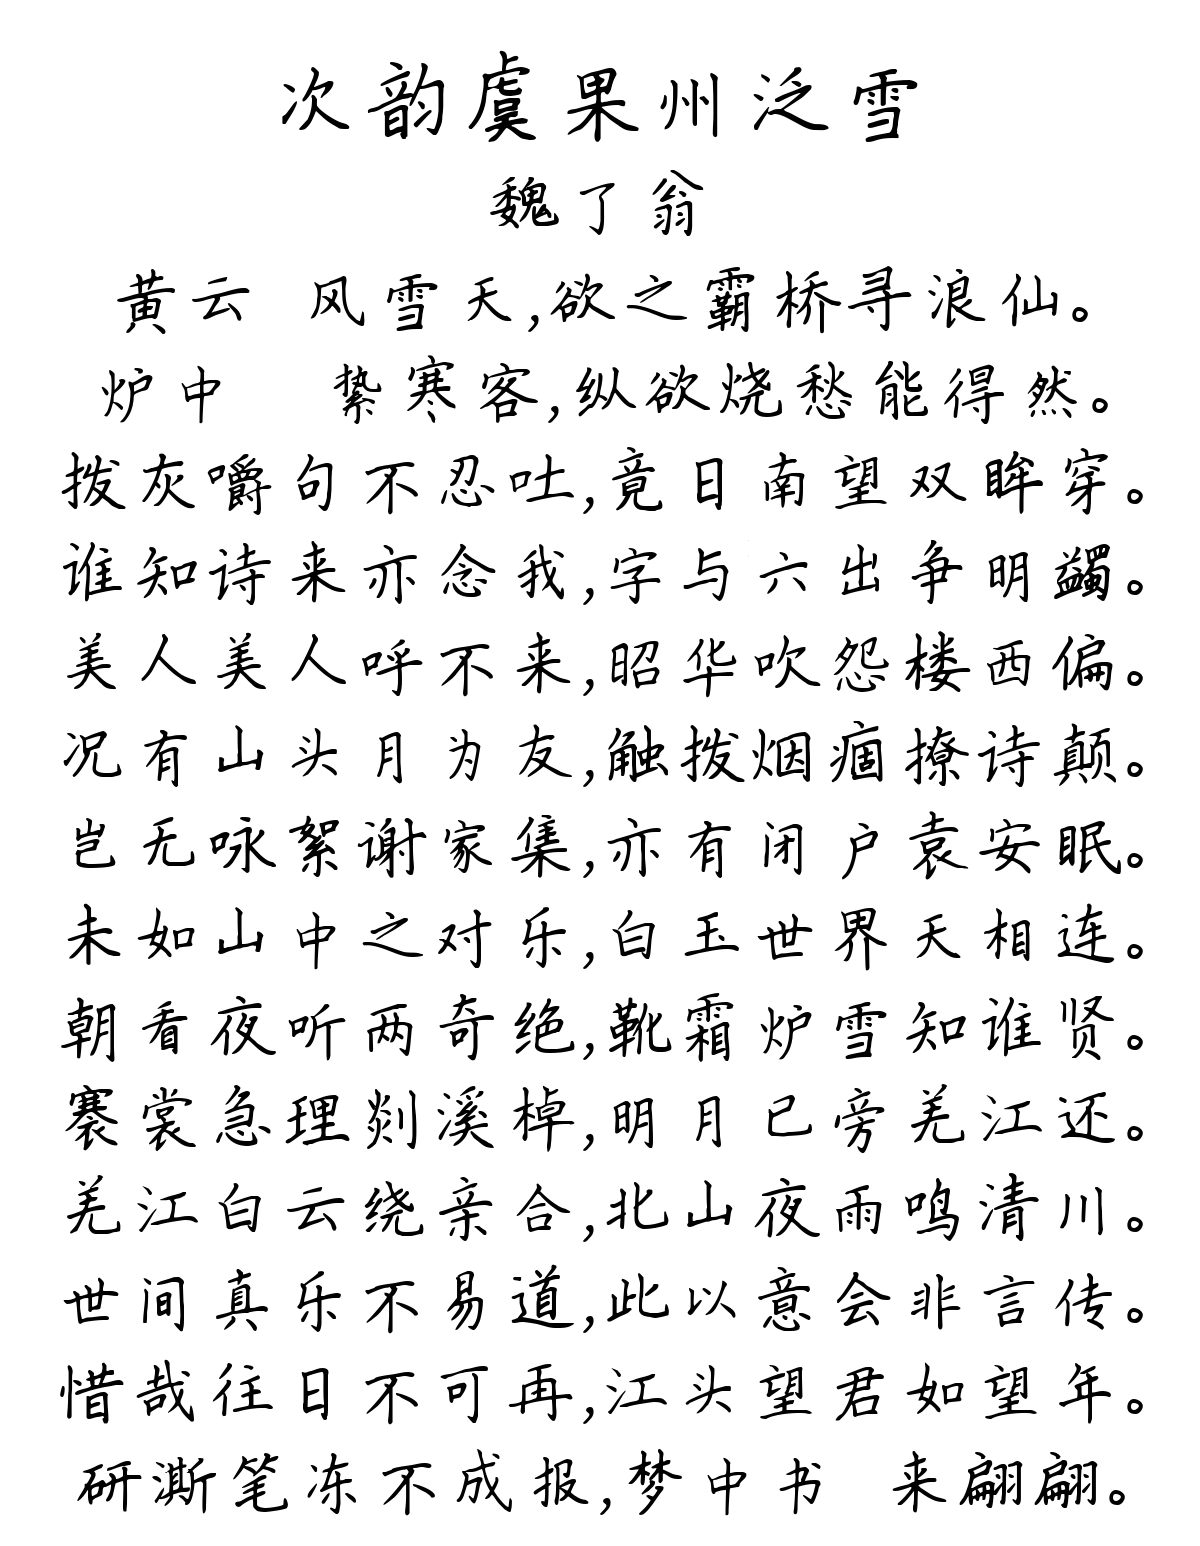 次韵虞果州泛雪
魏了翁
黄云 风雪天,欲之霸桥寻浪仙。
炉中 絷寒客,纵欲烧愁能得然。
拨灰嚼句不忍吐,竟日南望双眸穿。
谁知诗来亦念我,字与六出争明蠲。
美人美人呼不来,昭华吹怨楼西偏。
况有山头月为友,触拨烟痼撩诗颠。
岂无咏絮谢家集,亦有闭户袁安眠。
未如山中之对乐,白玉世界天相连。
朝看夜听两奇绝,靴霜炉雪知谁贤。
褰裳急理剡溪棹,明月已旁羌江还。
羌江白云绕亲合,北山夜雨鸣清川。
世间真乐不易道,此以意会非言传。
惜哉往日不可再,江头望君如望年。
研澌笔冻不成报,梦中书 来翩翩。